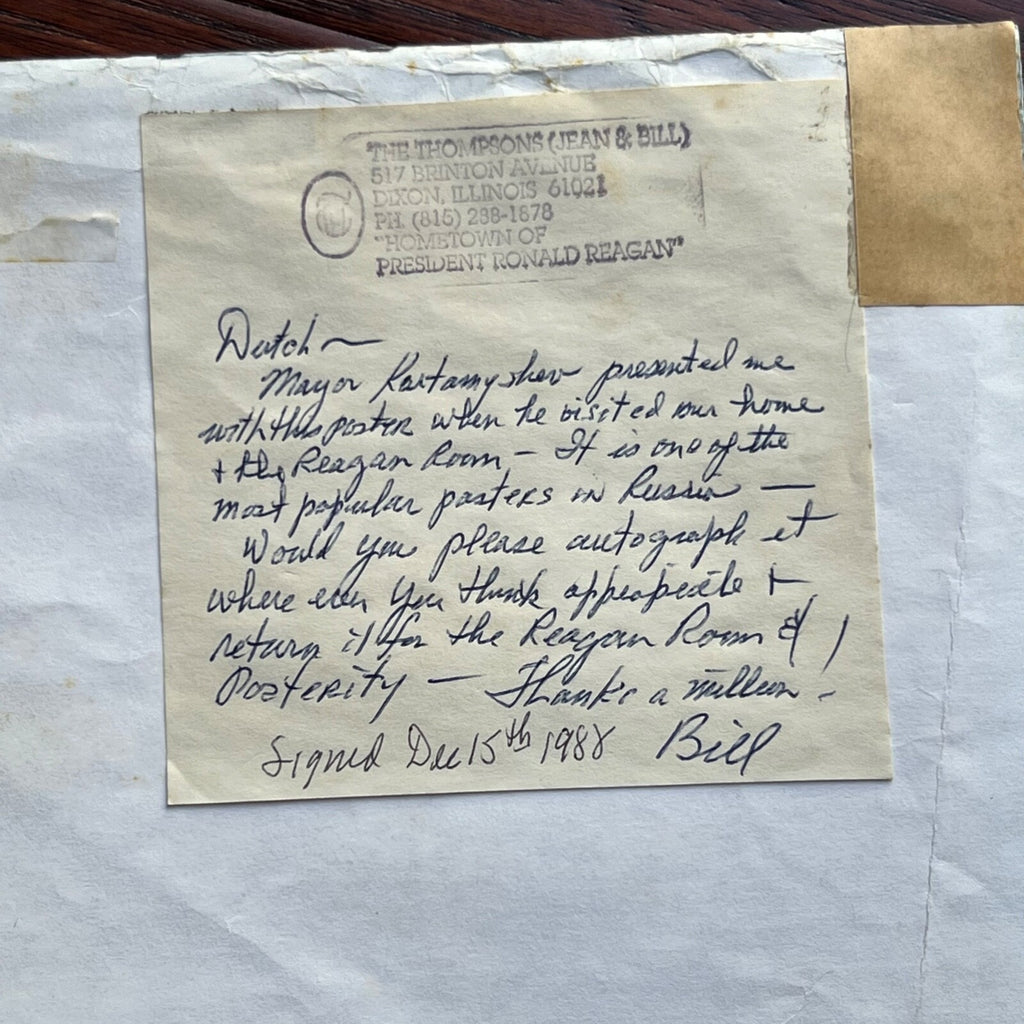 THE THOMPSONS (JEAN & BILL)
517 BRINTON AVENUE
DIXON, ILLINOIS 61021
PH. (815) 288-1678
"HOMETOWN OF
PRESIDENT RONALD REAGAN"
Dutch ~
Mayor presented me
with this poster when he visited our home
+ the Reagan Room - It is one of the
most popular posters in Russia —
Would you please autograph it
where ever you think appropriate +
return it for the Reagan Room &
Posterity — Thanks a million -
Signed Dec 15th 1988 Bill